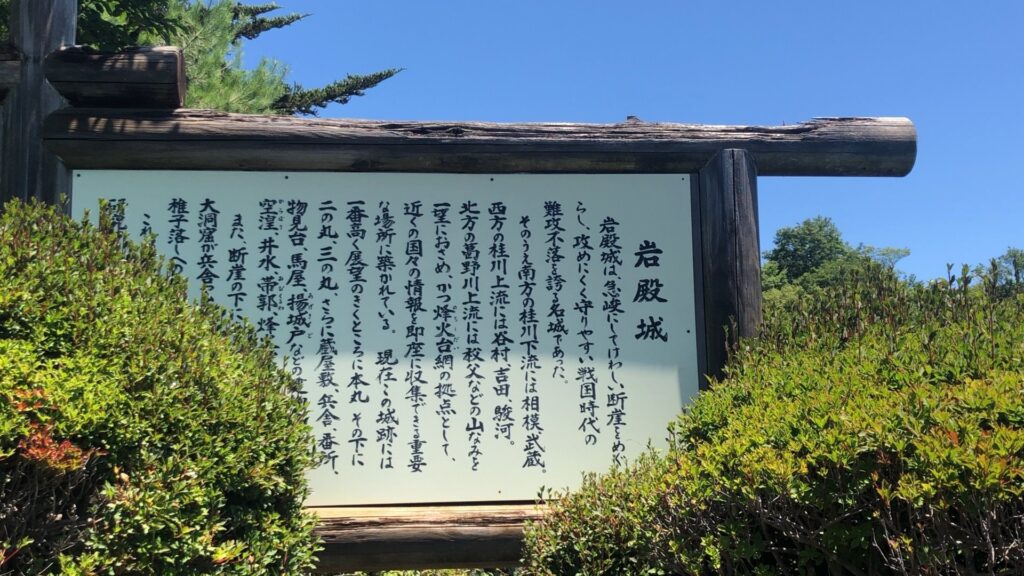 岩殿城
岩殿城は、急峻にしてけわしい断崖をめ
らし、攻めにくく守りやすい戦国時代の
難攻不落を誇る名城であった。
そのうえ南方の桂川下流には相模、武蔵。
西方の桂川上流には谷村、吉田、駿河。
北方の葛野川上流には秩父などの山なみを
一望におさめ、かつ烽火台網の拠点として、
近くの国々の情報を即座に収集できる重要
な場所に築かれている。現在この城跡には
一番高く展望のきくところに本丸、その下に
二の丸、三の丸、さらに蔵屋敷、兵舎、番所、
物見台、馬屋、揚城戸などの
空湟、井水、帯郭、烽
また、断崖の下
大洞窟が兵舎
稚子落への
これ